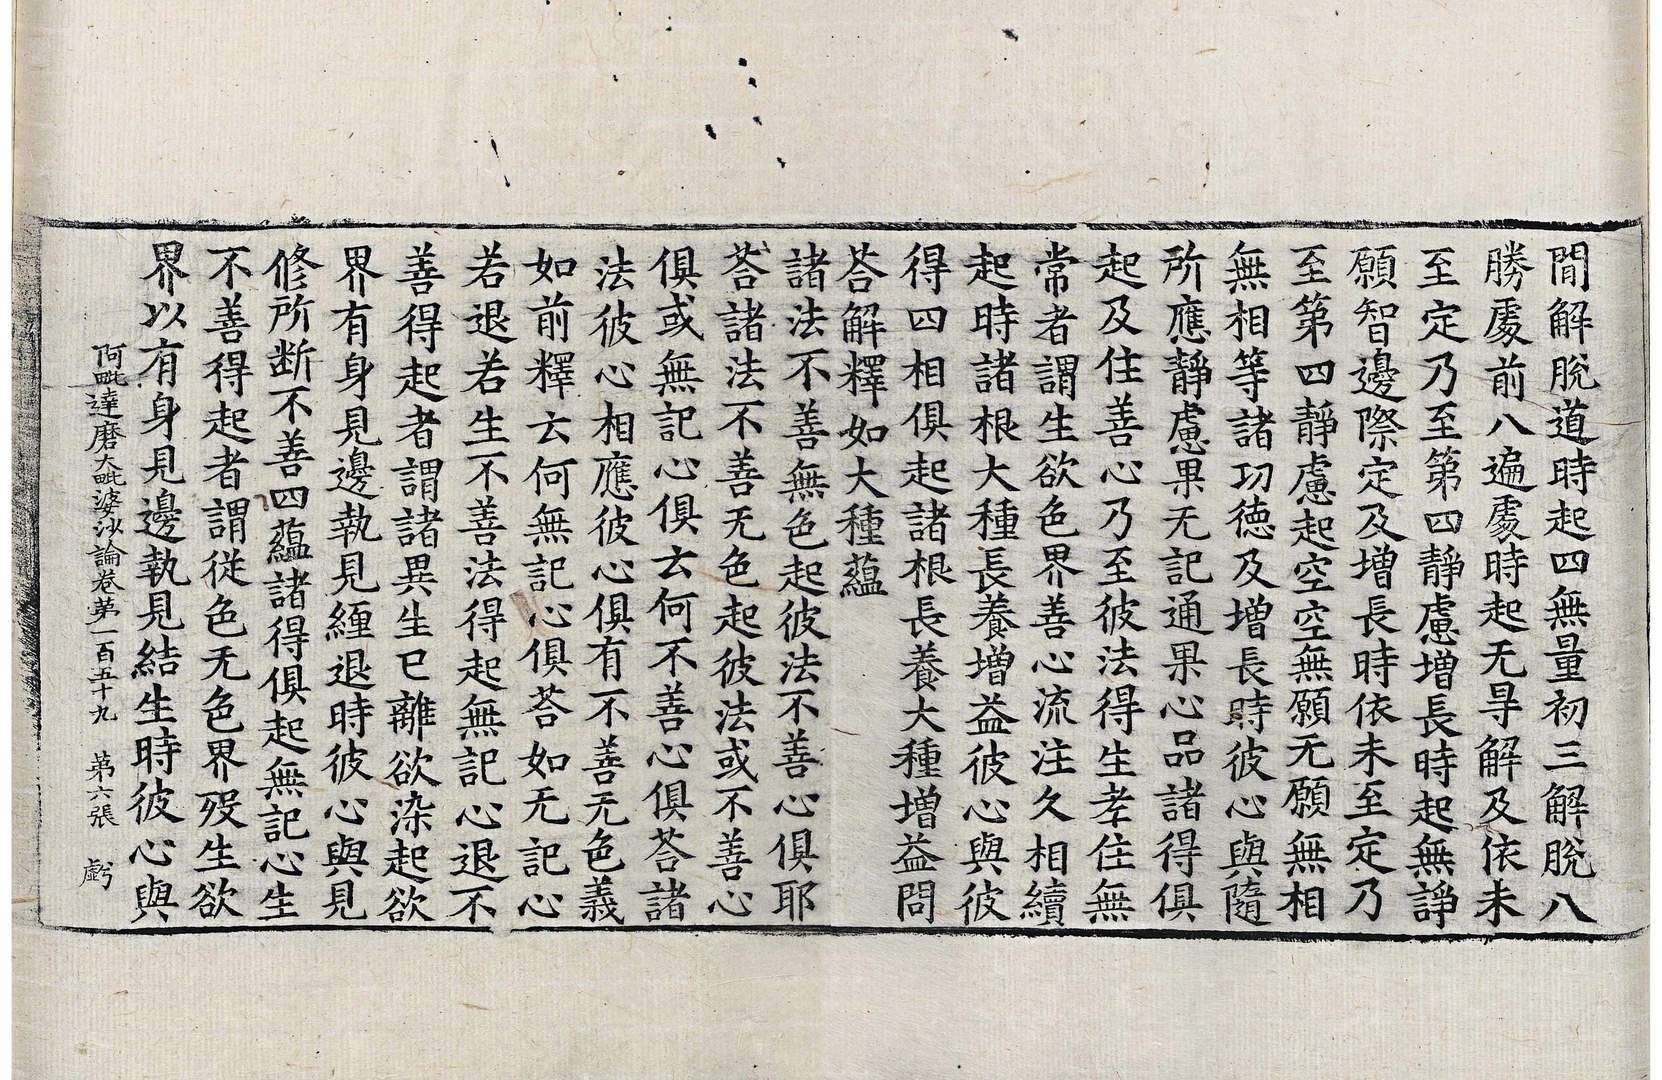 間解脫道時起四無量初三解脫八
勝處前八遍處時起无㝵解及依未
至定乃至第四靜慮增長時起無諍
願智邊際定及增長時依未至定乃
至第四靜慮起空空無願无願無相
無相等諸功德及增長時彼心與隨
所應靜慮果无記通果心品諸得俱
起及住善心乃至彼法得生孝住無
常者謂生欲色界善心流注久相續
起時諸根大種長養增益彼心與彼
得四相俱起諸根長養大種增益問
荅解釋如大種蘊
諸法不善無色起彼法不善心俱耶
荅諸法不善无色起彼法或不善心
俱或無記心俱云何不善心俱荅諸
法彼心相應彼心俱有不善无色義
如前釋云何無記心俱荅如无記心
若退若生不善法得起無記心退不
善得起者謂諸異生已離欲染起欲
界有身見邊執見纏退時彼心與見
修所断不善四蘊諸得俱起無記心生
不善得起者謂從色无色界歿生欲
界以有身見邊執見結生時彼心與
阿毗達磨大毗婆沙論卷苐一百五十九 第六張 虧